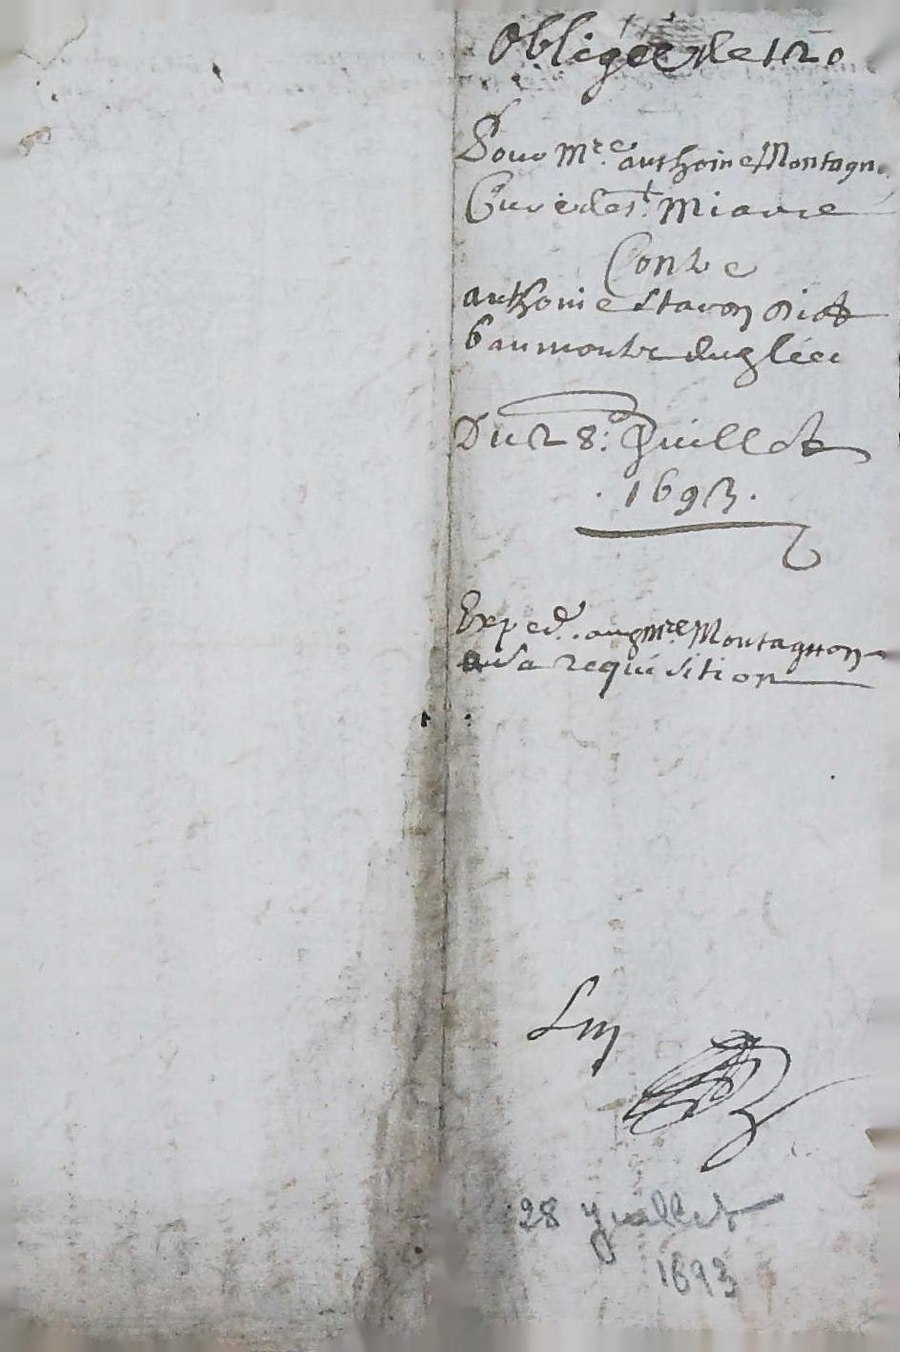 Obligãoñ de 120
Pour Mre. anthoine Montagn
Curé de st. Miavre
Contre
anthoine Estavon dict
baumontz du gleer
Du 28e. Juillet
. 1693 .
Exped. aud mre. Montagnon
a sa requisition
28 juillet
1693